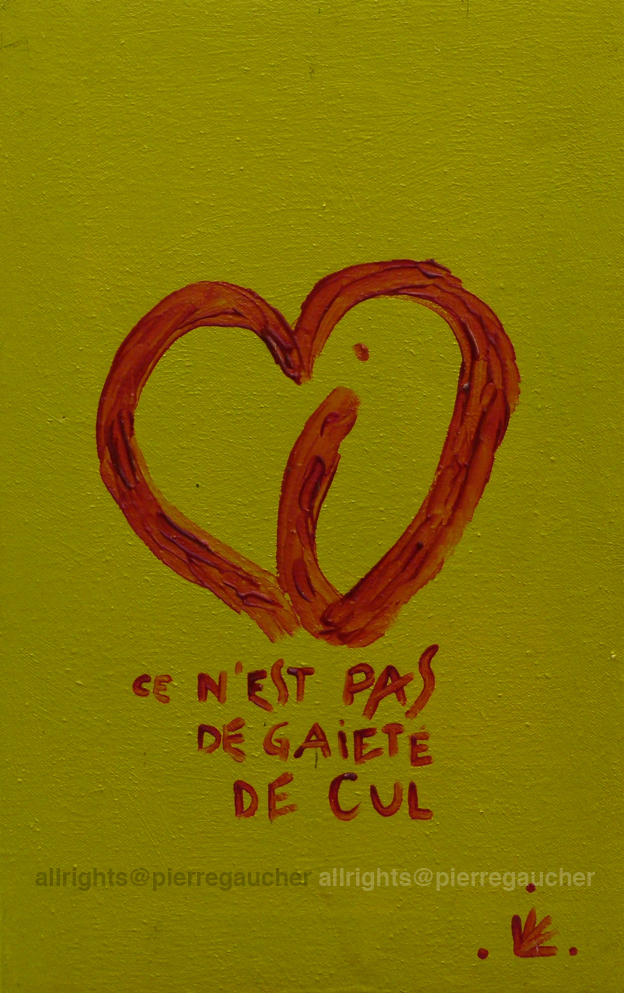 CE N'EST PAS
DE GAiETE
DE CUL
allrights@pierregaucher allrights@pierregaucher